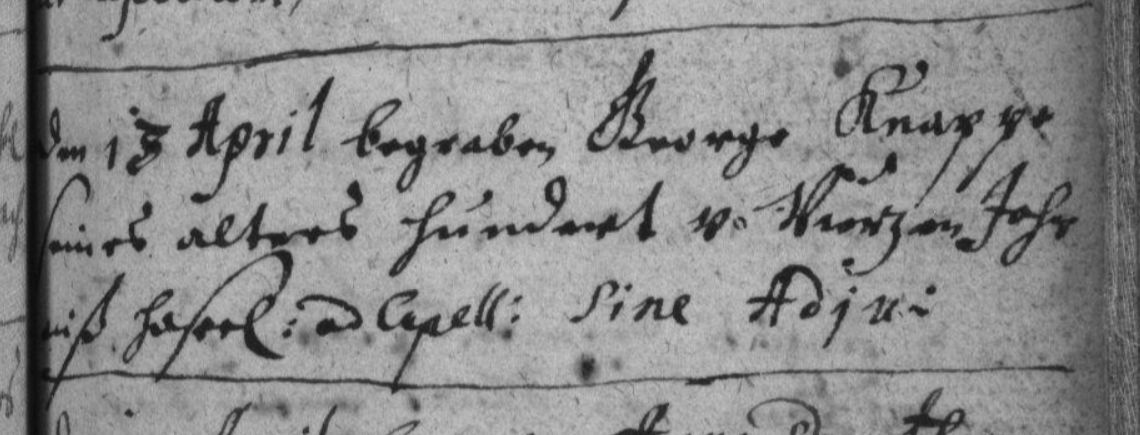 den 18 April begraben George Knappe
seines alters hundert v. Vierzen Jahr
auß Hasel: ad Capell: Sine